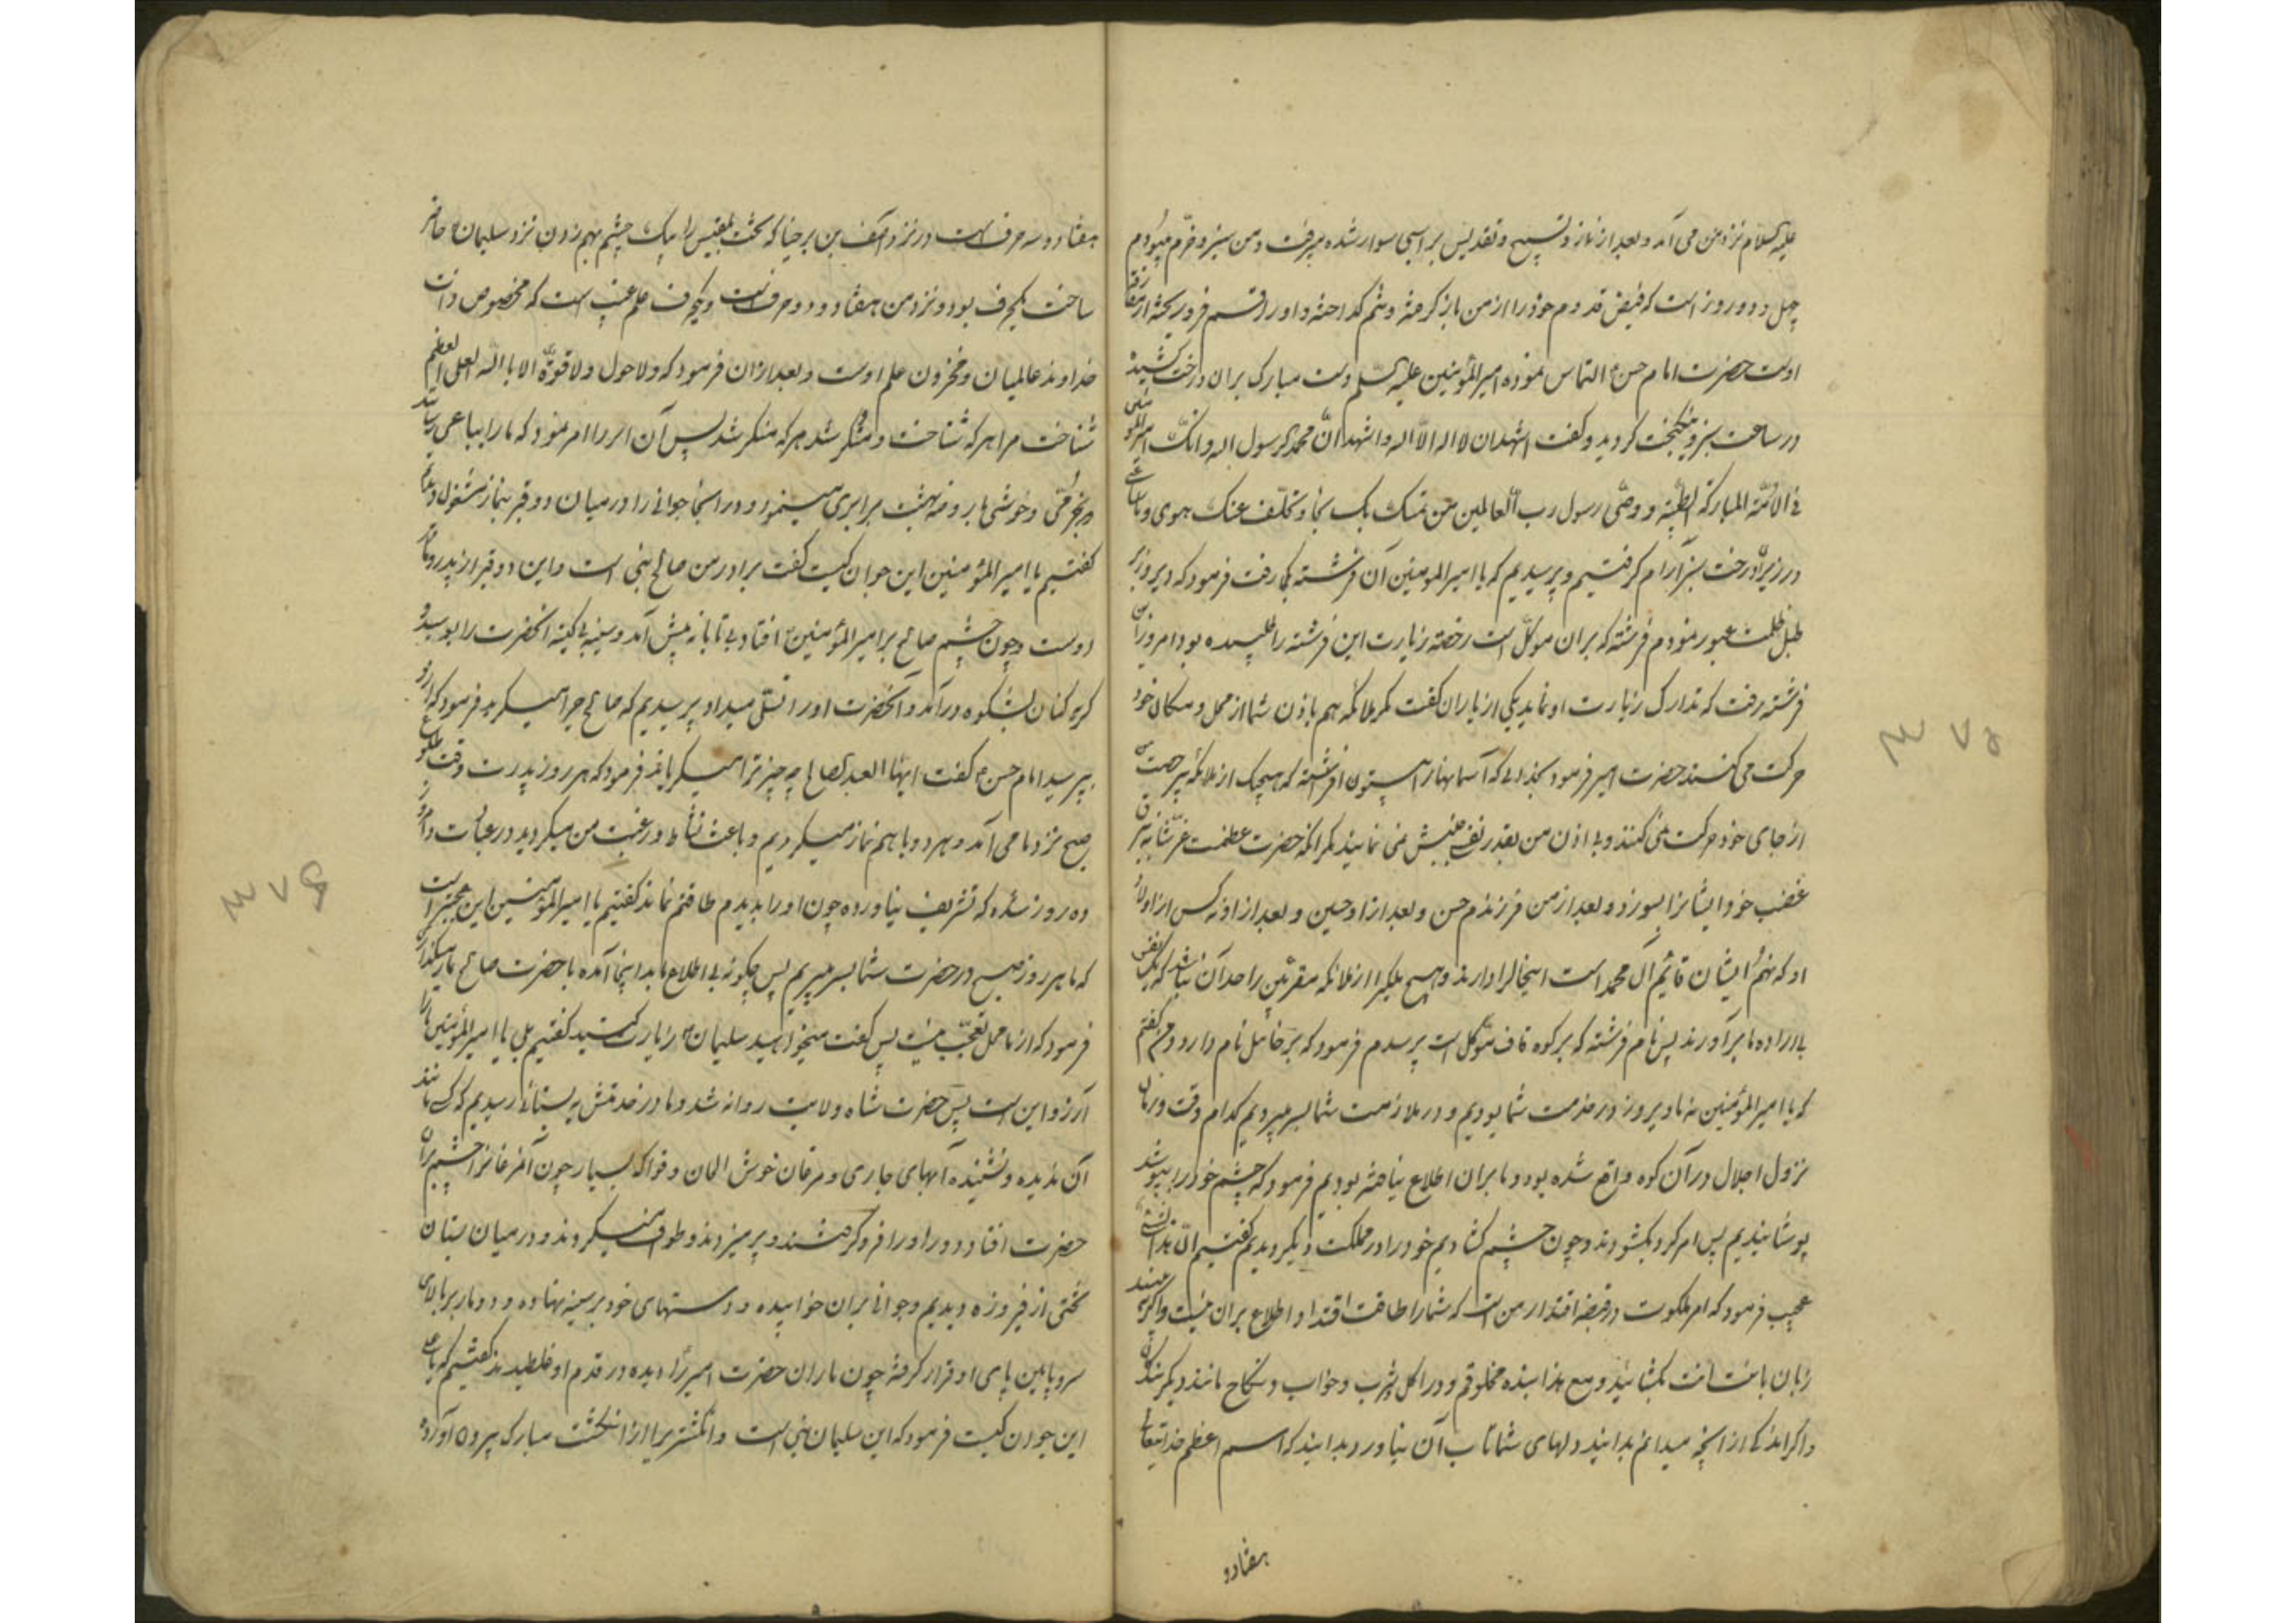 علیه السلام نزد من می آمد و بعد از نماز و تسبیح و تقدیس بر اسبی سوار شده میرفت و من سبز و خرم میبودم
چهل و دو روز است که فیض قدوم خود را از من باز گرفته
اوست حضرت امام حسن التماس نموده امیر المؤمنین علیه السلم دست مبارک بران درخت کشید
در ساعت سبز و گردید و گفت اشهد ان لا اله الا اله و اشهد ان محمدا رسول اله و انک امیر
فی الائمة المبارکة الطیبة و وصی رسول رب العالمین من تمسک بک نجا و تخلف عنک هوی و ما
در زیر درخت سبز آرام گرفتیم و پرسیدیم که یا امیر المومنین آن فرشته کجا رفت فرمود که دیروز بر
ظلمت عبور نمودم فرشته که بران موکل است رخصه زیارت این فرشته را طلبیده بود امروز این
فرشته رفت که تدارک زیارت او نماید یکی از یاران گفت مگر ملائکه هم باذن شما از محل و مکان خود
حرکت می کنند حضرت امیر فرمود بخدایی که آسمانها را بیستون افراشته که هیچیک از ملائکه
از جای خود حرکت نمی کنند و بی اذن من بقدر نفسی جنبش نمی نمایند مگر انکه حضرت عظمت
غضب خود ایشانرا بسوزد و بعد از من فرزندم حسن و بعد از او حسین و بعد از او نه کس از اولاد
او که نهم ایشان قائم آل محمد است اینحال را دارند و هیچ یکی را از ملائکه مقربین را حد آن نباشد که یک نفس
بی اراده ما برآورند پس نام فرشته که بر کوه قاف موکل است پرسیدم فرمود که برخائیل نام دارد گفتم
که یا امیر المؤمنین نه ما دیروز در خدمت شما بودیم و در ملازمت شما بسر میبردیم کدام وقت و زمان
نزول اجلال در آن کوه واقع شده بود و ما بران اطلاع نیافته بودیم فرمود که چشم خود را بپوشید
پوشانیدیم پس امر کرد بکشودند و چون چشم کشادیم خود را در مملکت دیگر دیدیم گفتیم ان هذا لشئ
عجیب فرمود که امر ملکوت در قبضه اقتدار من است که شما را طاقت و اطلاع بران نیست و اگر
زبان کشائید و مع هذا بنده مخلوقم و در اکل و شرب و خواب و نکاح مانند دیگر بندگان
و اگر اندکی از انچه میدانم بدانید دلهای شما تاب آن نیاورد بدانید که اسم اعظم خدایتعالی
هفتاد و
هفتاد و سه حرف است و در نزد آصف بن برخیا که تخت بلقیس را بیک چشم بهم زدن نزد سلیمان حاضر
ساخت یکحرف بود و نزد من هفتاد و دو حرف است و یکحرف علم غیب است که مخصوص ذات
خداوند عالمیان و مخزون علم اوست و بعد ازان فرمود که ولا حول ولا قوة الا بالله العلی العظیم
شناخت مرا هر که شناخت و منکر شد هر که منکر شد پس آن ابر را امر نمود که ما را بباغی رساند
و خوشی با روضه بهشت برابری مینمود و در اینجا جوانی را در میان دو قبر بنماز مشغول
گفتیم یا امیر المؤمنین این جوان کیست گفت برادر من صالح نبی است و این دو قبر از پدر و مادر
اوست و چون چشم صالح بر امیر المؤمنین افتاد بی تابانه پیش آمد و سینه بی کینه انحضرت را بوسید و
گریه کنان بشکوه درآمد و آنحضرت او را تسلی میداد پرسیدیم که صالح چرا میگرید فرمود که از او
بپرسید امام حسن گفت ایها العبد الصالح چه چیز ترا میگریاند فرمود که هر روز پدرت وقت طلوع
صبح نزد ما می آمد و هر دو با هم نماز میکردیم و باعث نشاط و رغبت من میگردید در عبادت و امروز
ده روز شده که تشریف نیاورده چون او را بدیدم طاقتم نماند گفتیم یا امیر المؤمنین این عجبتر است
که ما هر روز صبح در حضرت شما بسر میبریم پس چگونه بی اطلاع ما بدینجا آمده با حضرت صالح نماز میگذارید
فرمود که از ما محل تعجب نیست پس گفت میخواهید سلیمان را زیارت کنید گفتیم بلی یا امیر المؤمنین ما را
آرزو این است پس حضرت شاه ولایت روانه شد و ما در خدمتش به بستانی رسیدیم که کسی مانند
آن ندیده و نشنیده آبهای جاری و مرغان خوش الحان و فواکه بسیار چون آن مرغانرا چشم بران
حضرت افتاد دور او را فرو گرفتند و پر میزدند و طواف میکردند و در میان بستان
تختی از فیروزه دیدیم و جوانی بران خوابیده و دستهای خود بر سینه نهاده و دو مار بر بالای
سر و پایین پای او قرار گرفته چون ماران حضرت امیر را دیده در قدم او غلطیدند گفتیم که یا علی
این جوان کیست فرمود که این سلیمان نبی است و انگشتر را از انگشت مبارک بیرون آورد